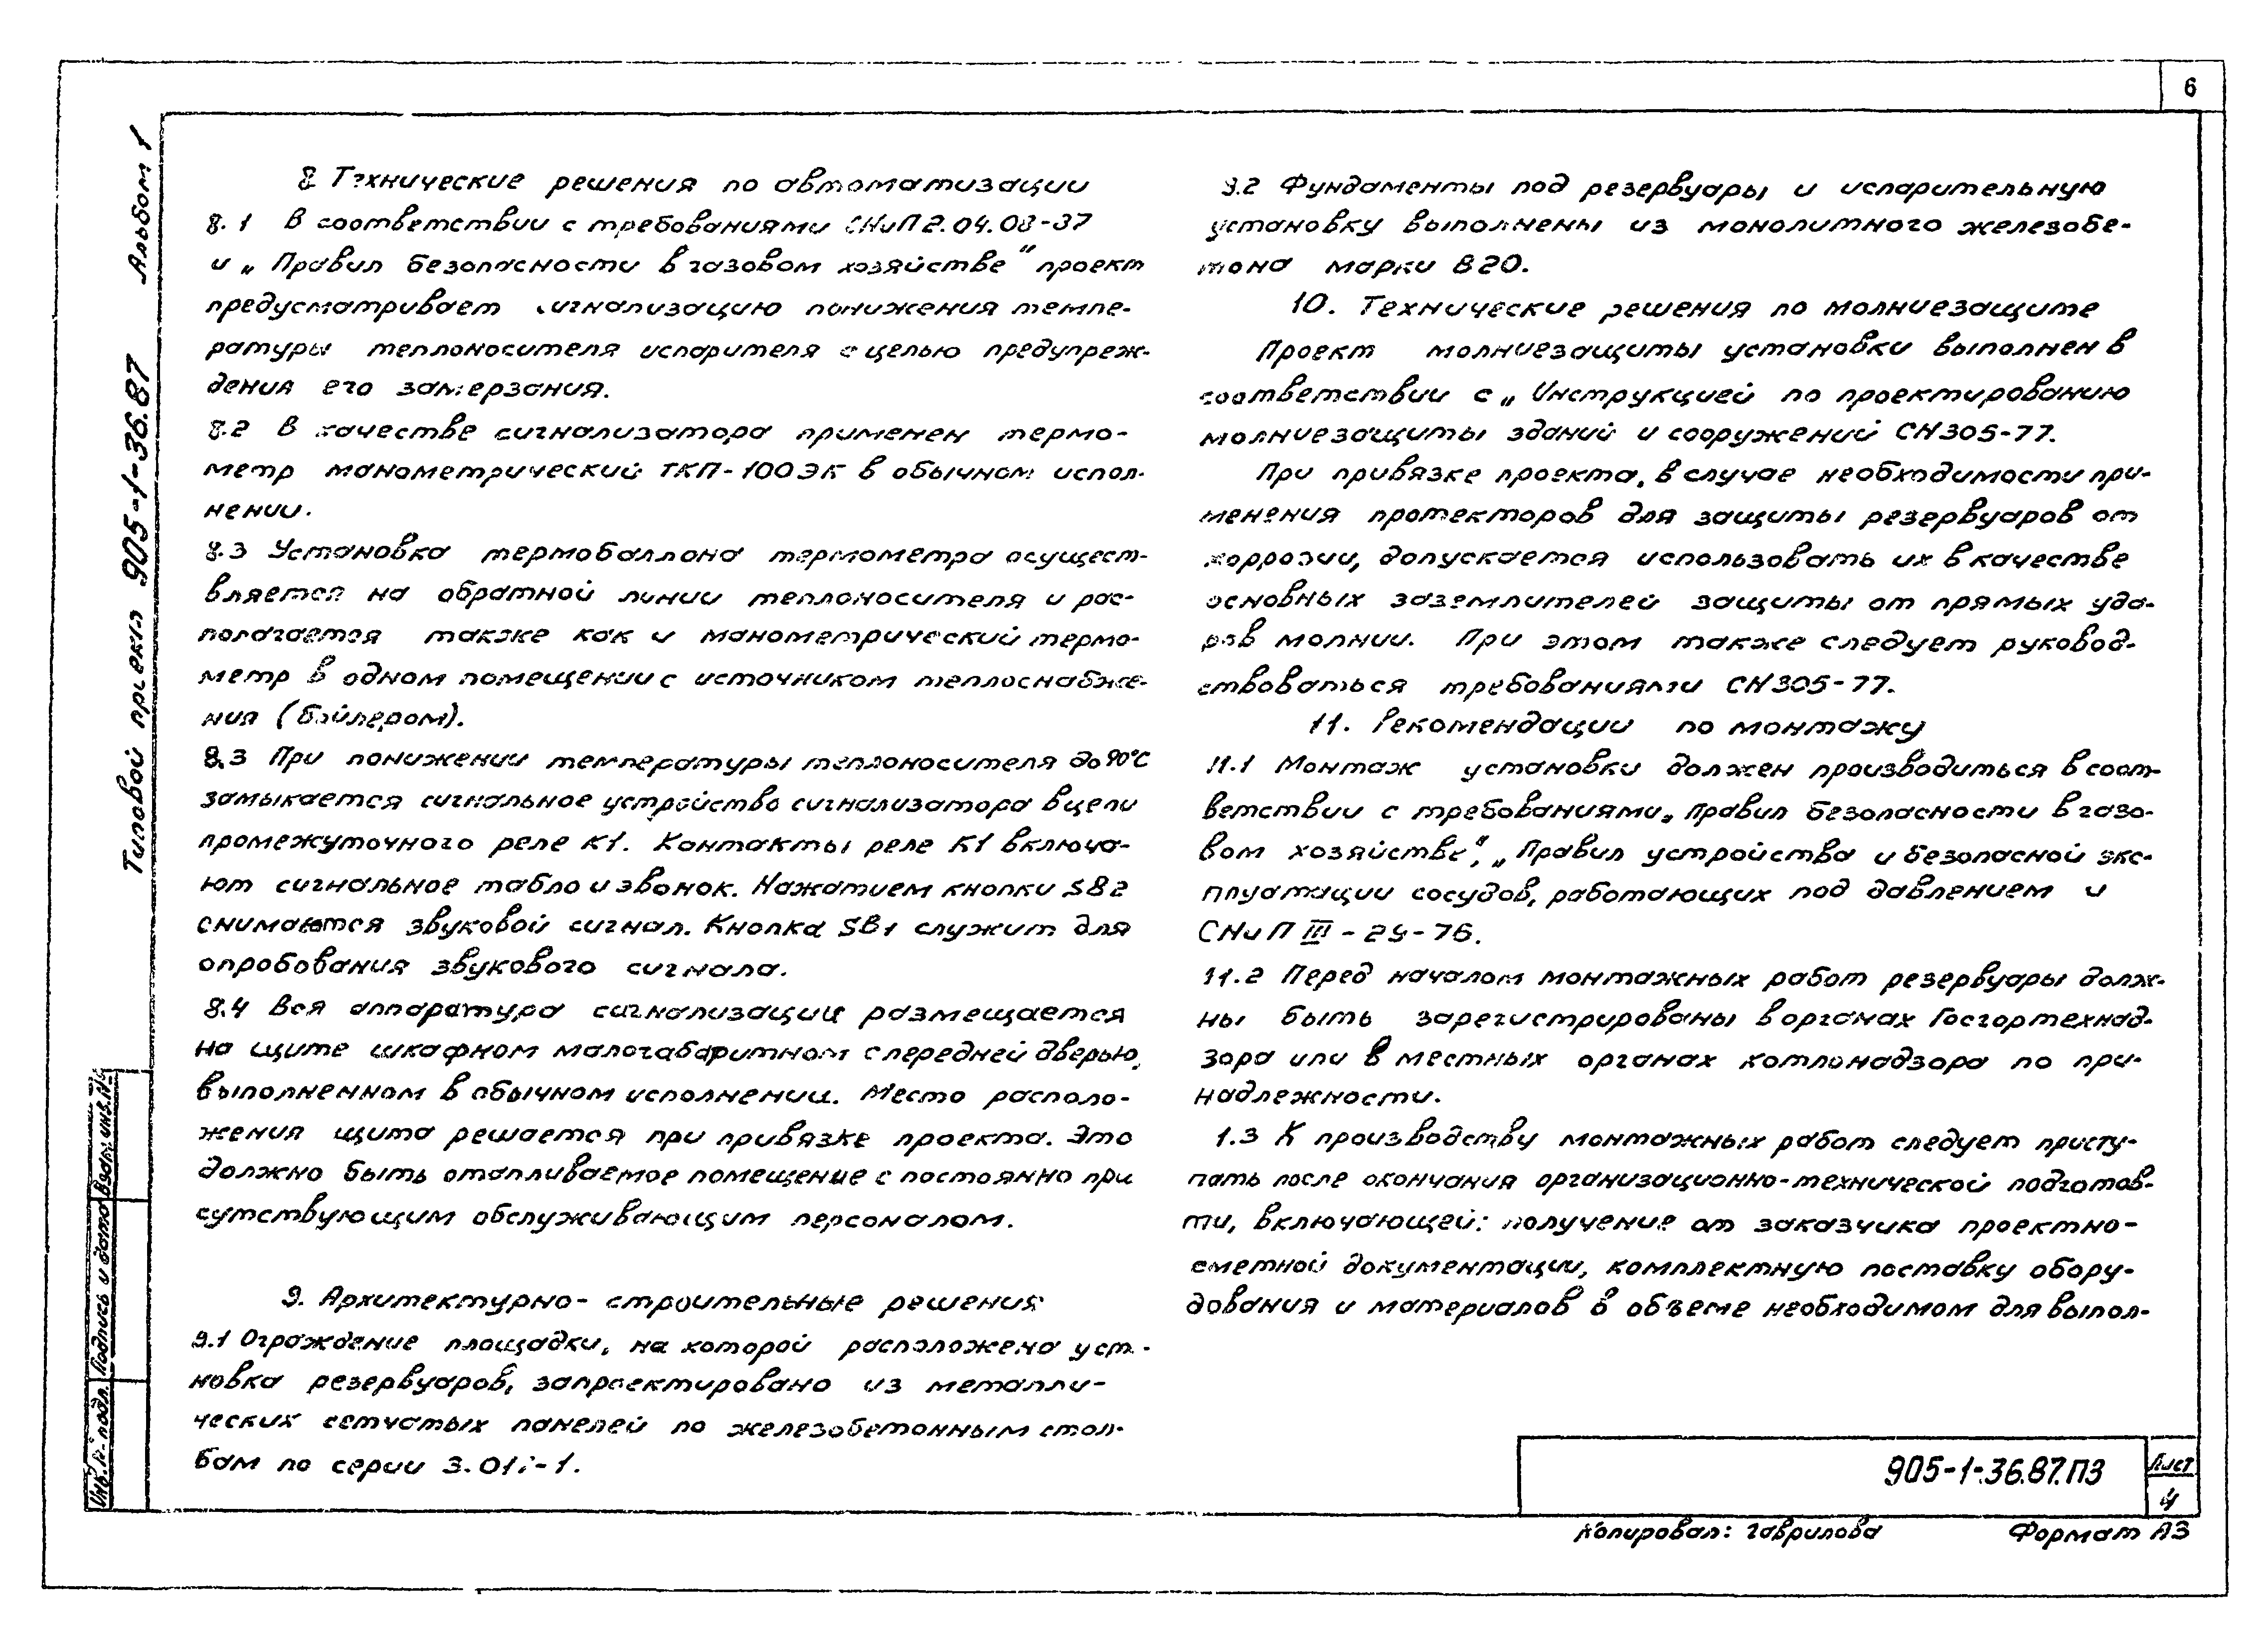 6
Альбом 1
Типовой проект 905-1-36.87
8 Технические решения по автоматизации
8.1 В соответствии с требованиями СНиП 2.04.08-37
и „Правил безопасности в газовом хозяйстве" проект
предусматривает сигнализацию понижения темпе-
ратуры теплоносителя испарителя с целью предупреж-
дения его замерзания.
8.2 В качестве сигнализатора применен термо-
метр манометрический ТКП-100ЭК в обычном испол-
нении.
8.3 Установка термобаллона термометра осущест-
вляется на обратной линии теплоносителя и рас-
полагается также как и манометрический термо-
метр в одном помещении с источником теплоснабже-
ния (бойлером).
8.3 При понижении температуры теплоносителя до 90°С
замыкается сигнальное устройство сигнализатора в цепи
промежуточного реле К1. Контакты реле К1 включа-
ют сигнальное табло и звонок. Нажатием кнопки SB2
снимаются звуковой сигнал. Кнопка SB1 служит для
опробования звукового сигнала.
8.4 Вся аппаратура сигнализации размещается
на щите шкафном малогабаритном с передней дверью,
выполненном в обычном исполнении. Место располо-
жения щита решается при привязке проекта. Это
должно быть отапливаемое помещение с постоянно при
сутствующим обслуживающим персоналом.
9. Архитектурно-строительные решения
9.1 Ограждение площадки, на которой расположена уст-
новка резервуаров, запроектировано из металли-
ческих сетчатых панелей по железобетонным стол-
бам по серии
9.2 Фундаменты под резервуары и испарительную
установку выполнены из монолитного железобе-
тона марки В20.
10. Технические решения по молниезащите
Проект молниезащиты установки выполнен в
соответствии с „Инструкцией по проектированию
молниезащиты зданий и сооружений СН305-77.
При привязке проекта, в случае необходимости при-
менения протекторов для защиты резервуаров от
коррозии, допускается использовать их в качестве
основных заземлителей защиты от прямых уда-
ров молнии. При этом также следует руковод-
ствоваться требованиями СН305-77.
11. Рекомендации по монтажу
11.1 Монтаж установки должен производиться в соот-
ветствии с требованиями „Правил безопасности в газо-
вом хозяйстве", „Правил устройства и безопасной экс-
плуатации сосудов, работающих под давлением и
СНиП III-29-76.
11.2 Перед началом монтажных работ резервуары долж-
ны быть зарегистрированы в органах Госгортехнад-
зора или в местных органах котлонадзора по при-
надлежности.
1.3 К производству монтажных работ следует присту-
пать после окончания организационно-технической подготов-
ти, включающей: получение от заказчика проектно-
сметной документации, комплектную поставку обору-
дования и материалов в объеме необходимом для выпол-
Инв. № подл. Подпись и дата Взам. инв. №
905-1-36.87.ПЗ
Лист
4
Копировал: Гаврилова Формат А3